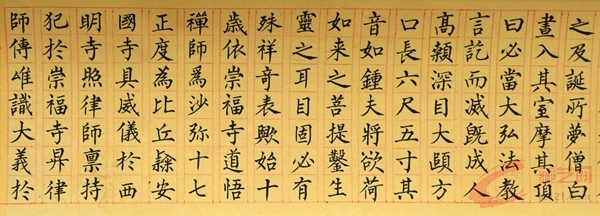 之及誕所夢僧白
晝入其室摩其頂
曰必當大弘法教
言訖而滅既成人
高顙深目大頤方
口長六尺五寸其
音如鍾夫將欲荷
如来之菩提鑿生
靈之耳目固必有
殊祥奇表歟始十
歲依崇福寺道悟
禪師爲沙弥十七
正度為比丘隸安
國寺具威儀於西
明寺照律師稟持
犯於崇福寺昇律
師傳唯識大義於